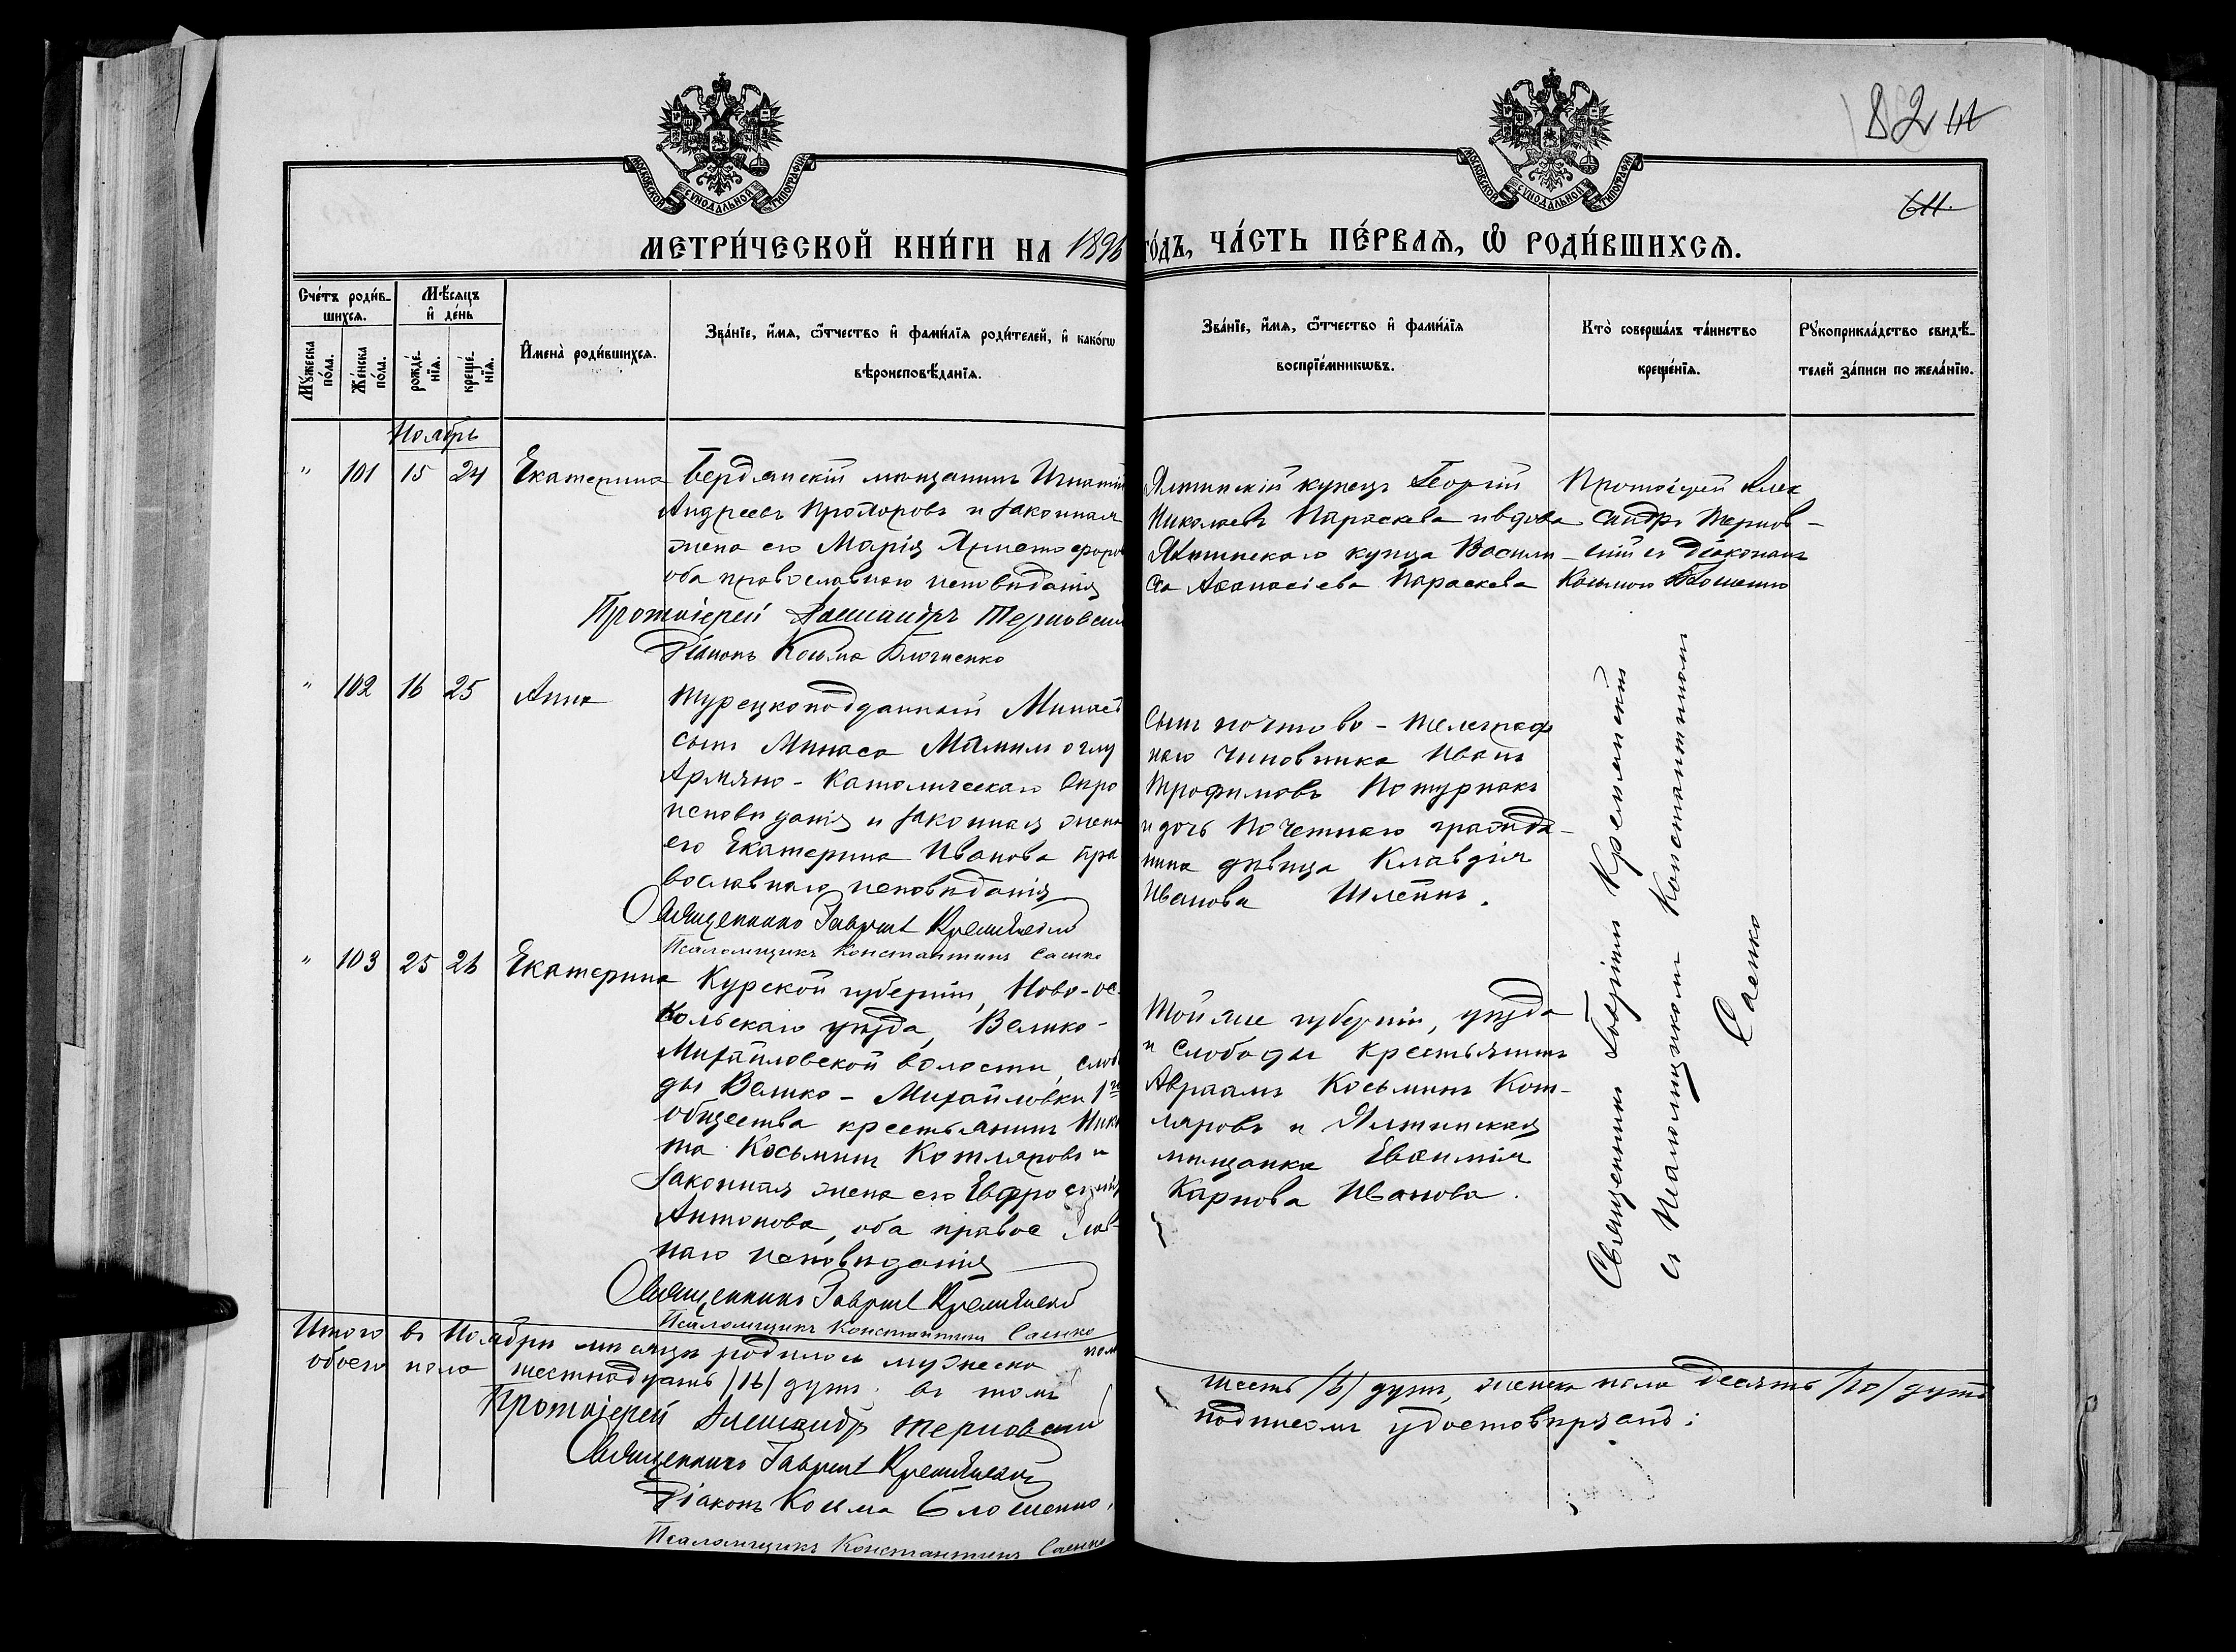 82
611.
МОСКОВСКОЙ СУНОДАЛЬНОЙ ТИПОГРАФІИ
МОСКОВСКОЙ СУНОДАЛЬНОЙ ТИПОГРАФІИ
МЕТРИ́ЧЕСКОЙ КНИ́ГИ НА 1896 ГО́ДЪ, ЧА́СТЬ ПЕ́РВАѦ, Ѡ РОДИ́ВШИХСѦ.
Сче́тъ роди́в-
шихсѧ.
Мꙋ́жеска
по́ла.
Же́нска
по́ла.
Мѣ́сѧцъ
и҆ де́нь
рожде́-
нїѧ.
креще́-
нїѧ.
И҆мена̀ роди́вшихсѧ.
Зва́нїе, и҆́мѧ, ѻ҆́тчество и҆ фами́лїѧ роди́телей, и҆ како́гѡ
вѣроисповѣ́данїѧ.
Зва́нїе, и҆́мѧ, ѻ҆́тчество и҆ фами́лїѧ
воспрїе́мникѡвъ.
Кто̀ соверша́лъ та́инство
креще́нїѧ.
Рꙋкоприкла́дство свидѣ́-
телей за́писи по жела́нїю.
Ноябрь
" 101 15 24 Екатерина
Бердянскій мѣщанинъ Игнатій
Андреевъ Прохоровъ и законная
жена его Марія
оба православнаго исповѣданія
Протоіерей Александръ Терновскій
Діаконъ Косьма Блошенко
Ялтинскій купецъ Георгій
Николаевъ Параскева и вдова
Ялтинскаго купца Васили-
са Аѳанасіева Параскева
Протоіерей Алек
сандръ Тернов-
скій съ діакономъ
Косьмою Блошенко
" 102 16 25 Анна
Турецкоподданный Минасъ
сынъ Минаса Мамим оглу
Армяно-Католическаго вѣро
исповѣданія и законная жена
его Екатерина Иванова пра
вославнаго исповѣданія
Священникъ Гавріилъ Кремянскій
Псаломщикъ Константинъ Саенко
Сынъ почтово-телеграф
наго чиновника Иванъ
Трофимовъ Потурнакъ
и дочь Почетнаго гражда-
нина дѣвица Клавдія
Иванова Шлейнъ.
" 103 25 26 Екатерина
Курской губерніи, Ново-ос-
кольскаго уѣзда, Велико-
Михайловской волости, слобо
ды Велико-Михайловки 1го
общества крестьянинъ Ники
та Косьминъ Котляровъ и
законная жена его Евфросинія
Антонова, оба православ-
наго исповѣданія
Священникъ Гавріилъ Кремянскій
Псаломщикъ Константинъ Саенко
Той же губерніи, уѣзда
и слободы крестьянинъ
Авраамъ Косьминъ Кот-
ляровъ и Ялтинская
мѣщанка Евѳимія
Карпова Иванова.
Священникъ Гавріилъ Кремянскій
съ Псаломщикомъ Константиномъ
Саенко
Итого въ Ноябрѣ мѣсяцѣ родилось мужеска пола
обоего пола шестнадцать /16/ душъ; въ томъ
шесть /6/ душъ, женска пола десять /10/ душъ
подписомъ удостовѣряютъ:
Протоіерей Александръ Терновскій
Священникъ Гавріилъ Кремянскій
Діаконъ Косьма Блошенко,
Псаломщикъ Константинъ Саенко